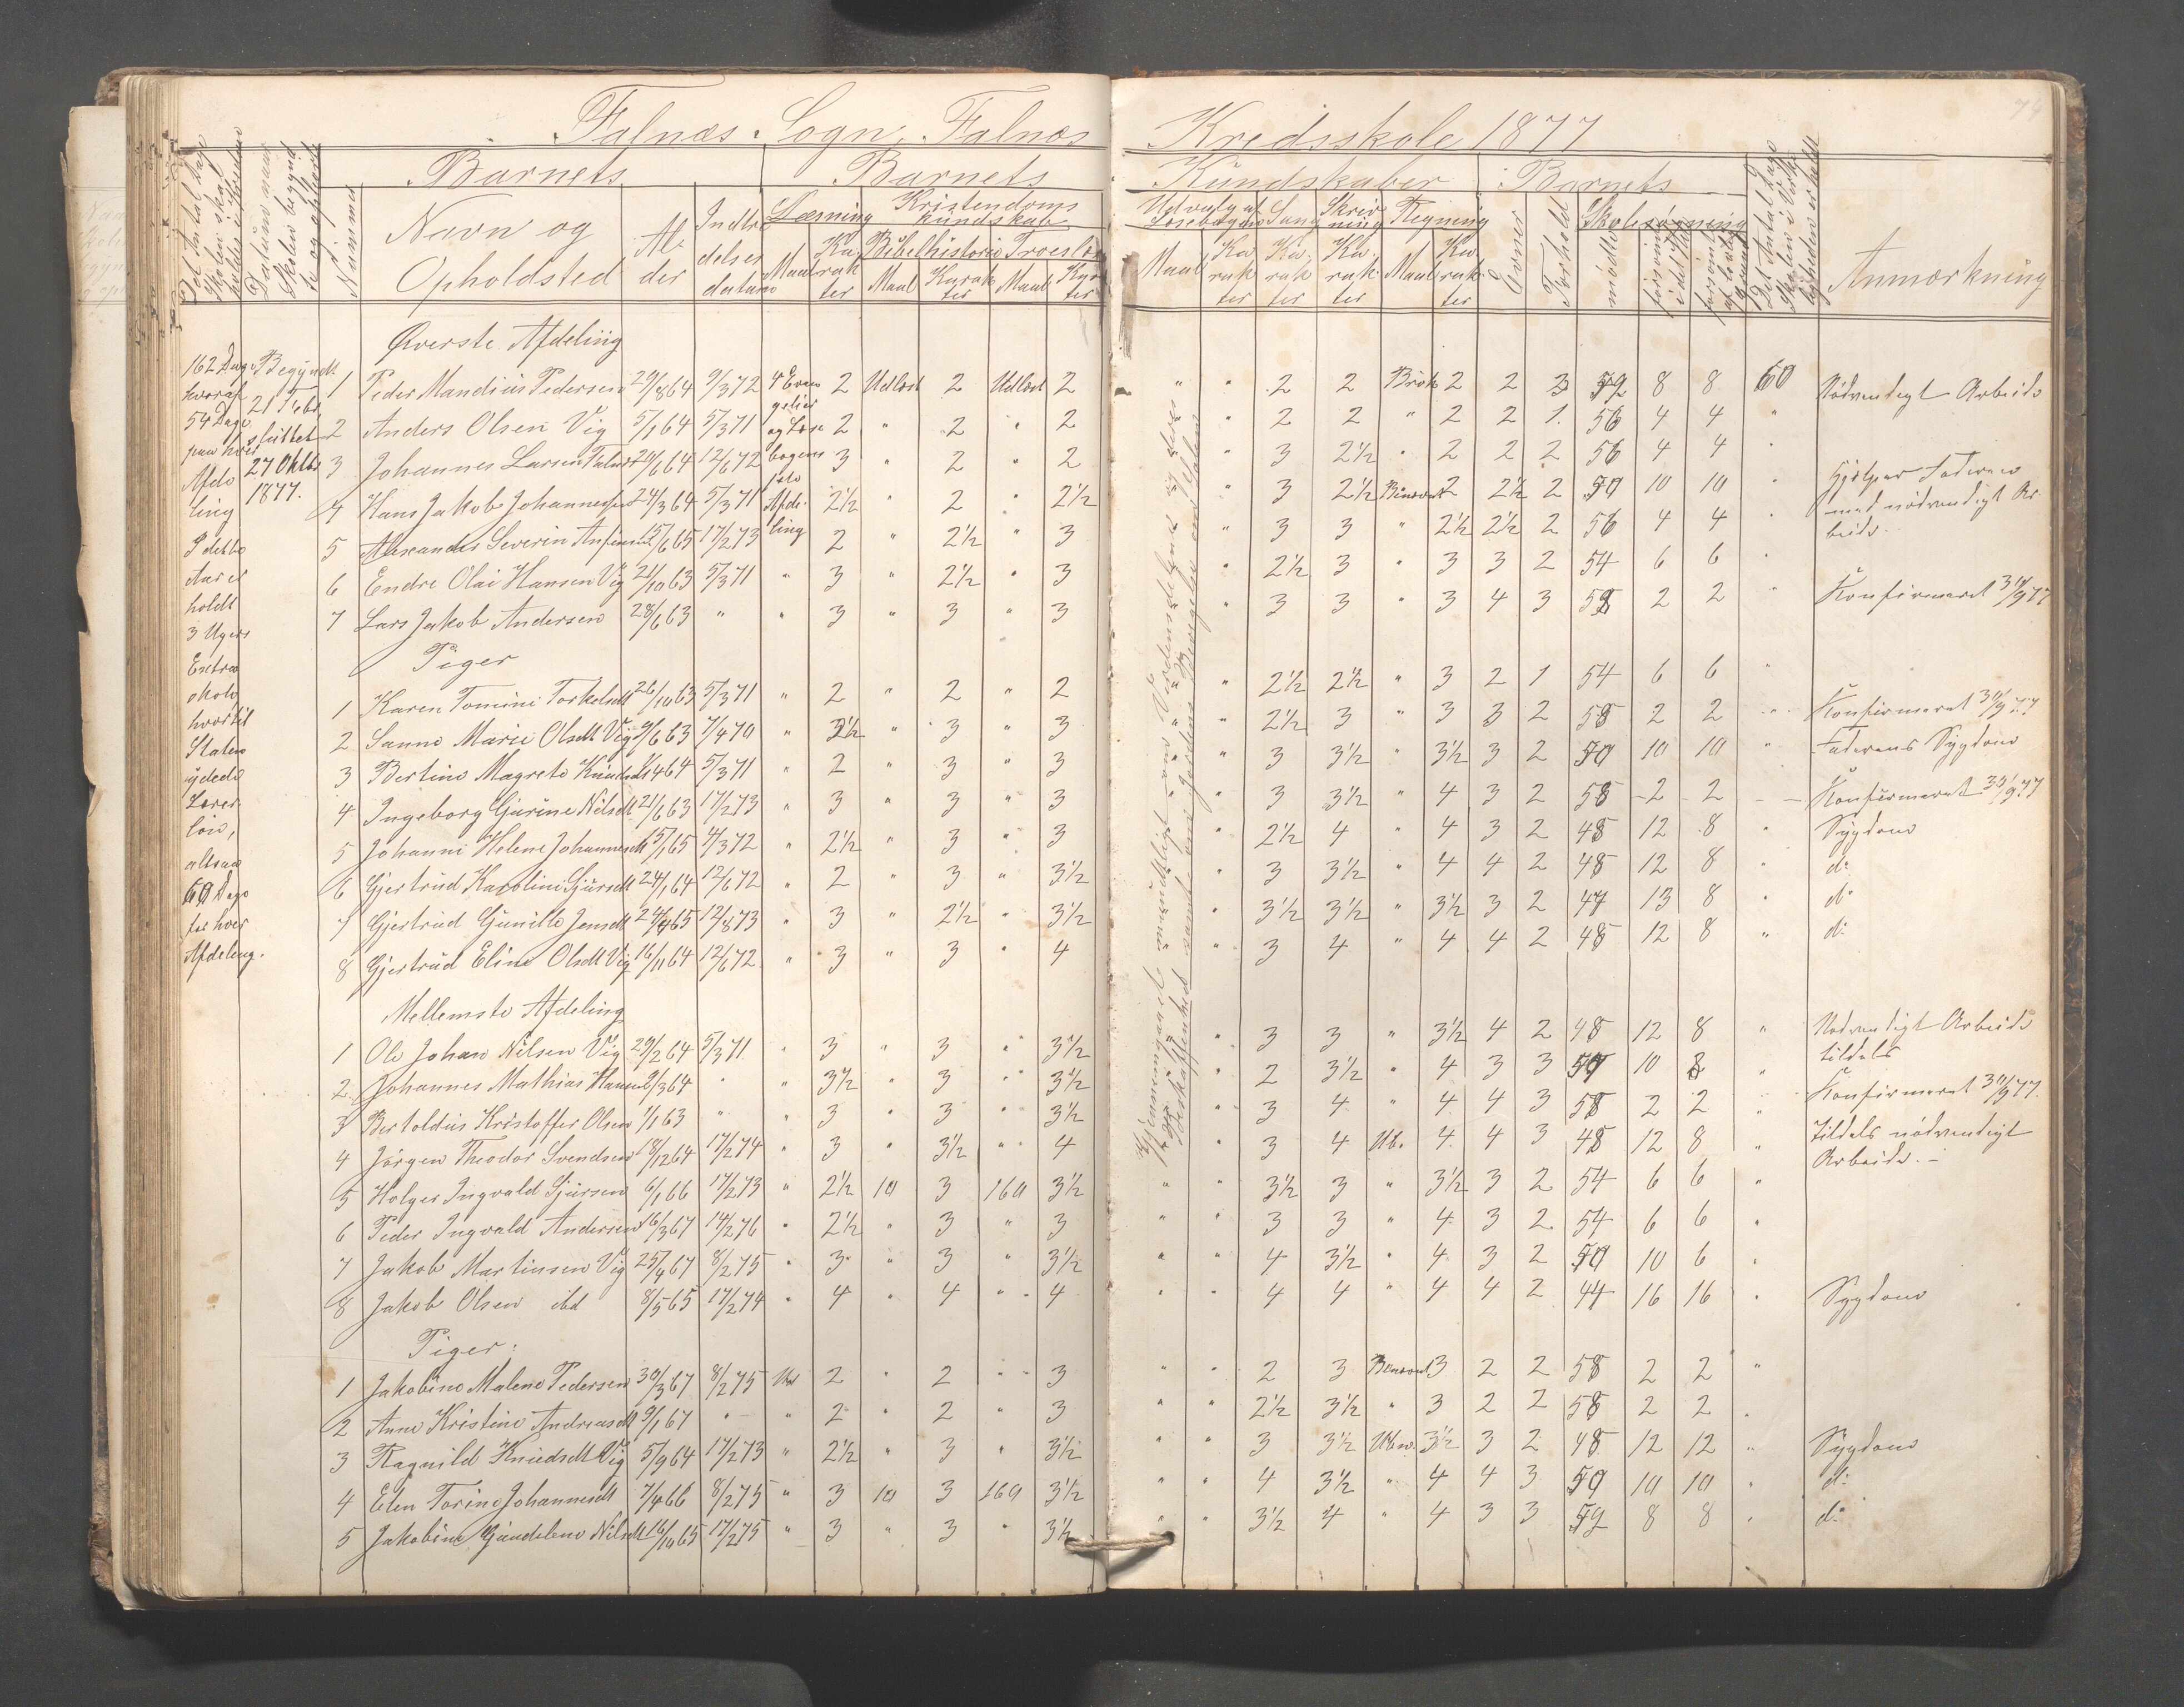 Falnæs Sogn, Falnæs Kredsskole 1877
74
Barnets Barnets Kundskaber Barnets
Det Antal Dage Skolen skal holdes i Kredsen
Datum naar Skolen begyndte og ophørte
Nummer
Navn og Opholdsted
Alder
Indtrædelses datum
Læsning Kristendomskundskab
Maal Karakter
Bibelhistorie Troeslære
Maal Karakter Maal Karakter
Udvalg af Læsebogen Sang Skrivning Regning
Maal Karakter Karakter Karakter Maal Karakter
Evner
Forhold
Skolesøgning
mødte
forsømte i det Hele
forsømte af lovlig Grund
Det Antal Dage Skolen i Virkeligheden er holdt
Anmærkning
162 Dage hvoraf 54 Dage paa hver Afdeling
I dette Aar er holdt 3 Ugers Extraskole hvortil Staten ydede Lærerløn, altsaa 60 Dage for hver Afdeling.
Begyndt 21 Febr. sluttet 27 Oktbr 1877.
Øverste Afdeling
1 Peder Mandius Pedersen 29/8 64 9/3 72 4 Evangelier og Læsebogens 1ste Afdeling 2 Udlæst 2 Udlæst 2 " " 2 2 Brøk 2 2 3 52 8 8 60 Nødvendigt Arbeide
2 Anders Olsen Vig 5/1 64 5/3 71 2 " 2 " 2 " 2 2 " 2 2 1. 56 4 4 "
3 Johannes Larsen Falnæs 20/6 64 12/6 72 3 " 2 " 2 " 3 2½ " 2 2 2 56 4 4 "
4 Hans Jakob Johannessen 24/3 64 5/3 71 2½ 2 " 2½ " 3 2½ Benævnt 2 2½ 2 50 10 10 " Hjelper Faderen med nødvendigt Arbeide.
5 Alexander Severin 15/6 65 17/2 73 2 " 2½ " 3 " 3 3 " 2½ 2½ 2 56 4 4 "
6 Endre Olai Hansen Vig 21/10 63 5/3 71 " 3 " 2½ " 3 " 2½ 3 " 3 3 2 54 6 6 "
7 Lars Jakob Andersen 28/6 63 " " 3 " 3 " 3 " 3 3 " 3 4 3 58 2 2 " Konfirmeret 30/9 77
Piger
1 Karen Tomine Torkelsdt 26/10 63 5/3 71 " 2 " 2 " 2 " 2½ 2½ " 3 2 1 54 6 6 "
2 Sanne Marie Olsdt Vig 9/6 63 7/4 70 " 2½ " 3 " 3 " 2½ 3 " 3 3 2 58 2 2 " Konfirmeret 30/9 77
3 Bertine Magrete Knudsdt 1/4 64 5/3 71 " 2 " 3 " 3 " 3 3½ " 3½ 3 2 50 10 10 " Faderens Sygdom
4 Ingeborg Gurine Nilsdt 21/6 63 17/2 73 " 3 " 3 " 3 " 3 3½ " 4 3 2 58 2 2 Konfirmeret 30/9 77
5 Johanne Helene Johannesdt 15/1 65 4/3 72 " 2½ " 3 " 3 " 2½ 4 " 4 3 2 48 12 8 " Sygdom
6 Gjertrud Karoline Sjursdt 24/1 64 12/6 72 " 2 " 3 " 3½ " 3 3½ " 4 4 2 48 12 8 " do
7 Gjertrud Gunille Jensdt 24/4 65 12/8 73 " 3 " 2½ " 3½ " 3½ 3½ " 3½ 3 2 47 13 8 " do
8 Gjertrud Eline Olsdt Vig 16/11 64 12/6 72 " 3 " 3 " 4 " 3 4 " 4 4 2 48 12 8 " do
Mellemste Afdeling
1 Ole Johan Nilsen Vig 29/2 64 5/3 71 " 3 " 3 " 3½ " 3 3 " 3½ 4 2 48 12 8 " Nødvendigt Arbeide tildels
2 Johannes Mathias Hansen 9/3 64 " " 3½ " 3 " 3½ " 2 3½ " 4 3 3 50 10 8 "
3 Bertoldius Kristoffer Olsen 1/1 63 " " 3 " 3 " 3½ " 3 4 " 4 4 3 58 2 2 " Konfirmeret 30/9 77.
4 Jørgen Theodor Svendsen 18/12 64 17/2 74 " 3 " 3½ " 4 " 3 4 Ub. 4 4 3 48 12 8 " Tildels nødvendigt Arbeide.
5 Holger Ingvald Sjursen 6/1 66 17/2 73 " 2½ 10 3 160 3½ " " 3½ 3 " 3½ 3 2 54 6 6 "
6 Peder Ingvald Andersen 16/3 67 14/2 76 " 2½ " 3 " 3 " " 3 3 " 4 3 2 54 6 6 "
7 Jakob Martinsen Vig 25/4 67 8/2 75 " 3 " 3 " 3½ " " 4 3½ " 4 3 2 50 10 6 "
8 Jakob Olsen ibd 8/5 65 17/2 74 " 4 " 4 " 4 " " 4 4 " 4 4 2 44 16 16 " Sygdom
Piger:
1 Jakobine Malene Pedersen 30/3 67 8/2 75 2 " 2 " 3 " " 2 3 Benævnt 3 2 2 58 2 2 "
2 Anne Kristine Andreasdt 9/1 67 " " 2 " 2 " 3 " " 2½ 3½ " 3 2 2 58 2 2 "
3 Ragnild Knudsdt Vig 5/9 64 17/2 73 " 2½ " 3 " 3½ " " 3 3½ Uben. 3½ 3 2 48 12 12 " Sygdom
4 Elen Torine Johannesdt 7/4 66 8/2 75 " 3 10 3 160 3½ " " 4 3½ " 4 4 3 50 10 10 " do
5 Jakobine Gundelene Nilsdt 16/10 65 17/2 75 " 3 " 3 " 3½ " " 3½ 4 " 4 3 3 52 8 8 " do
Gjennemgaaet mundtligt om Verdensdelene og deres
Beskaffenhed samt om Jordens Bevægelse om Solen